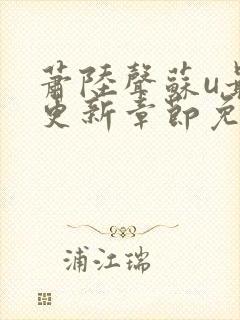 蕭陸聲蘇u
更新章節免
浦江瑞